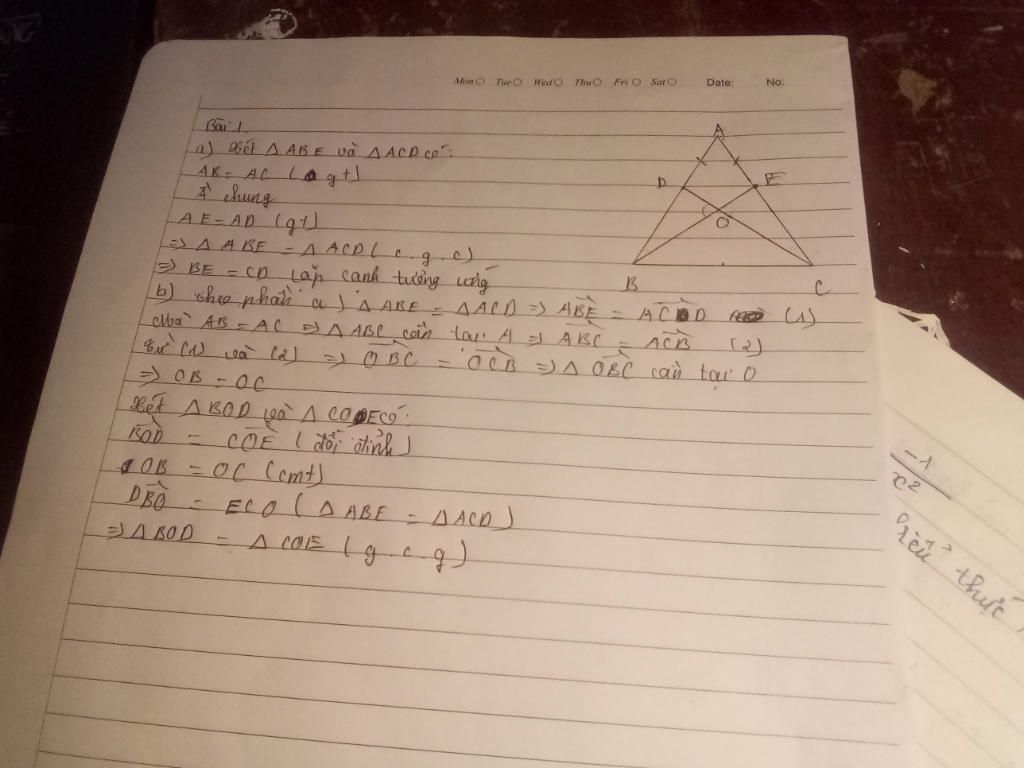 Mon Tue Wed Thu Fri Sat Date: No:
Bài 1.
a) Xét △ABE và △ACD có:
AB = AC (gt)
Â chung
AE = AD (gt)
=> △ABE = △ACD (c.g.c)
=> BE = CD cặp cạnh tương ứng
b) theo phần a) △ABE = △ACD => ABE = ACD (1)
Mà AB = AC => △ABC cân tại A => ABC = ACB (2)
Từ (1) và (2) => OBC = OCB => △OBC cân tại O
=> OB = OC
Xét △BOD và △COE có:
BOD = COE (đối đỉnh)
OB = OC (cmt)
DBO = ECO (△ABE = △ACD)
=> △BOD = △COE (g.c.g)
A
D E
O
B C
-1
x²
thức